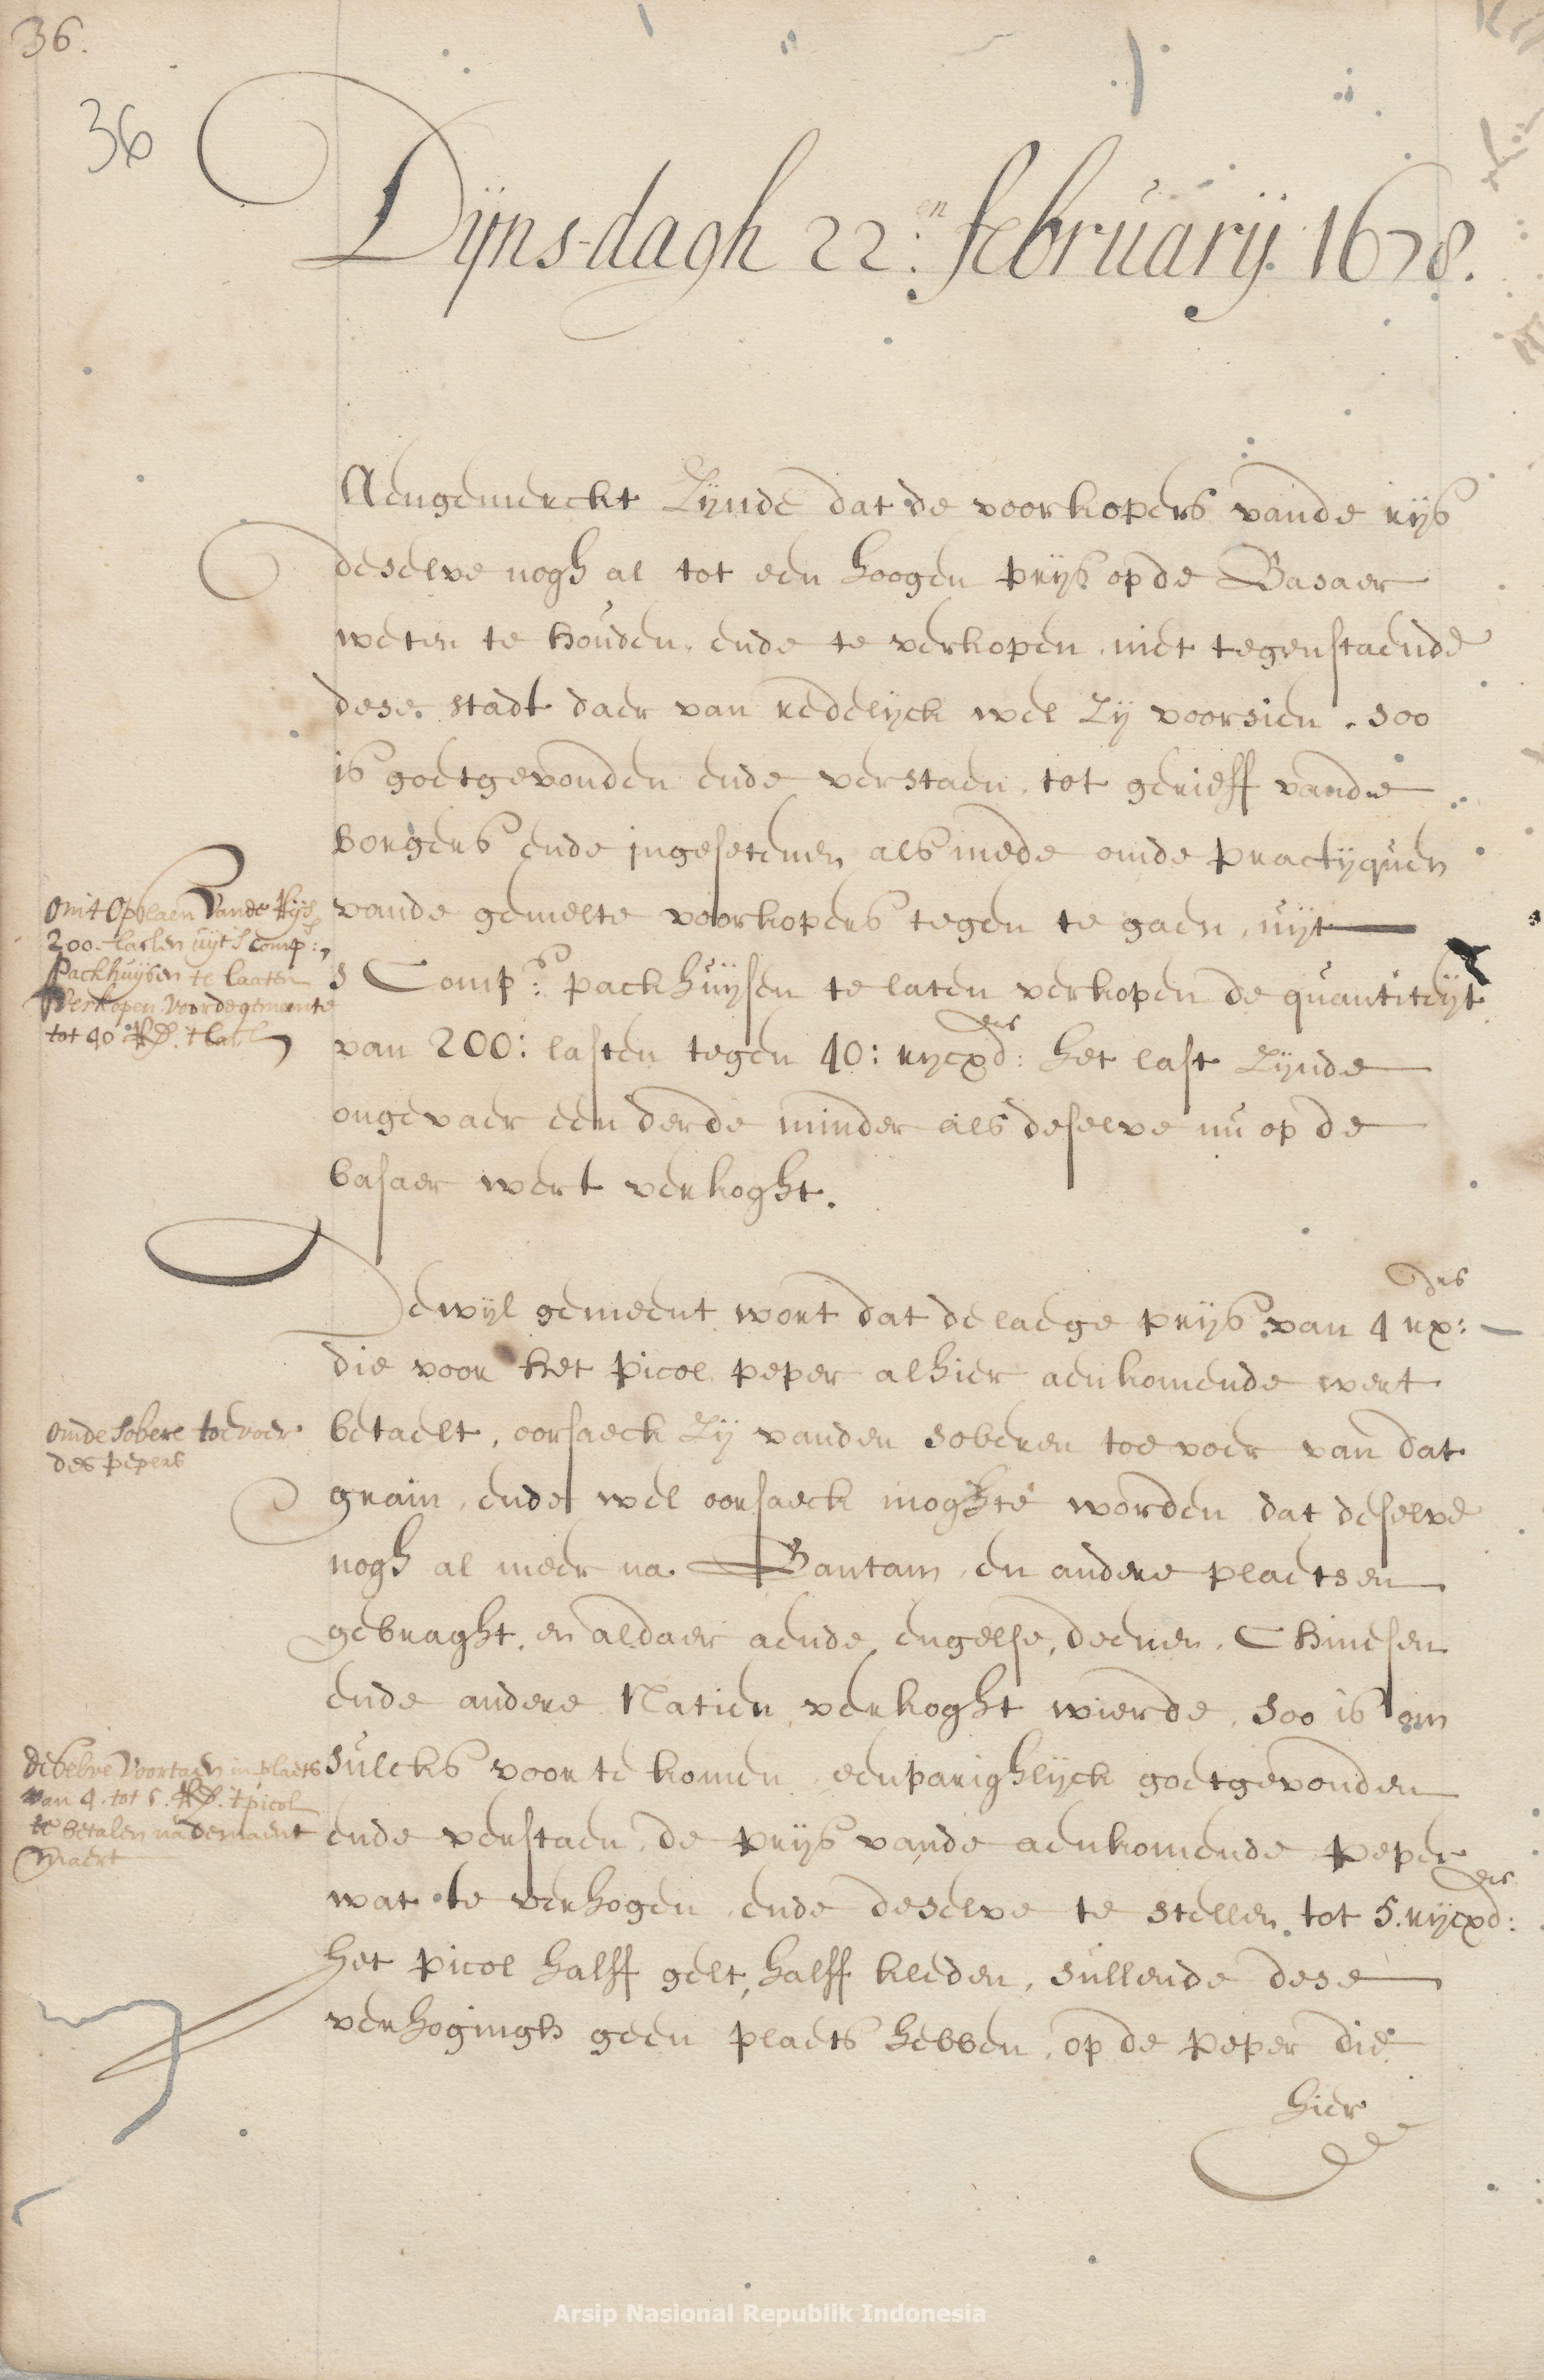 36.
36
Dijnsdagh 22:en februarij 1678.
Aengemerckt Zijnde dat de voorkopers vande rijs
deselve nogh al tot een hoogen prijs op de Basaer
weten te houden, ende te verkopen, niet tegenstaende
dese stadt daer van redelijck wel Zij voorsien, soo
is goetgevonden ende verstaen, tot gerieff vande
borgers ende jngesetenen, als mede omde practijquen
vande gemelte voorkopers tegen te gaen, uijt
s Comp:s packhuijsen te laten verkopen de quantiteijt
van 200: lasten tegen 40: rijcxd:ers het last Zijnde
ongevaer een derde minder als deselve nu op de
basaer wert verkoght.
Omt Opslaen Vande Rijs
200 lasten uijt 's Comp:s
Packhuijsen te laaten
Verkopen voor de gemeente
tot 40 Rd.s t last
Dewijl gemeent wort dat de laege prijs van 4 rx:ders
die voor het picol peper alhier aenkomende wert
betaelt, oorsaeck Zij vanden soberen toevoer van dat
grain, ende wel oorsaeck moghte worden dat deselve
nogh al meer na Bantam, en andere plaetsen
gebraght, en aldaer aende engelse, deenen, Chinesen
ende andere Natien verkoght wierde, soo is om
sulcks voor te komen, eenparighlijck goetgevonden
ende verstaen, de prijs vande aenkomende peper
wat te verhogen, ende deselve te stellen tot 5. rijcxd:ers
het picol halff gelt, halff kleden, sullende dese
verhogingh geen plaets hebben, op de peper die
omde sobere toevoer
des pepers
deselve voortaen in plaets
van 4. tot 5. Rd.s t picol
te betalen na de maent
Maert
hier
Arsip Nasional Republik Indonesia